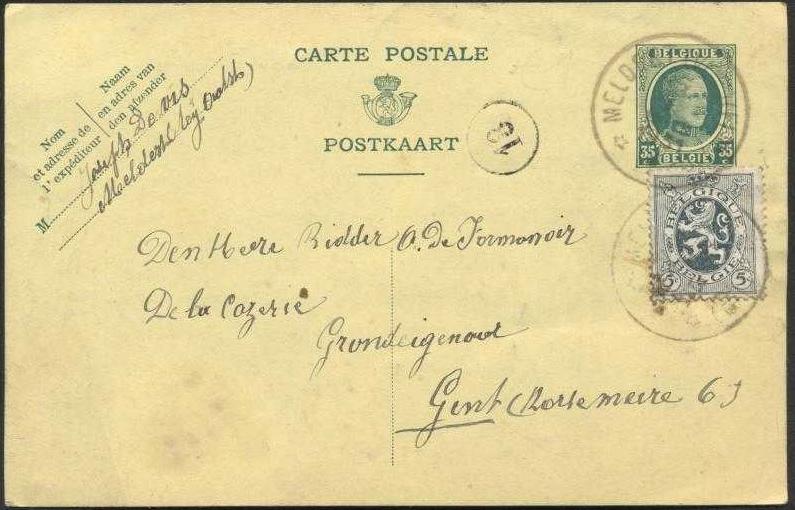 CARTE POSTALE
POSTKAART
Naam
en adres van
den afzender
Nom
et adresse de
l'expéditeur
M
Joseph De vis
Meldert bij Aalst)
18
BELGIQUE
35 35
BELGIË
MELD
BELGIQUE
BELGIË
5 5
Den Heere Ridder A. De Formanoir
De la Cazerie
Grondeigenaar
Gent (Korte meire 6)